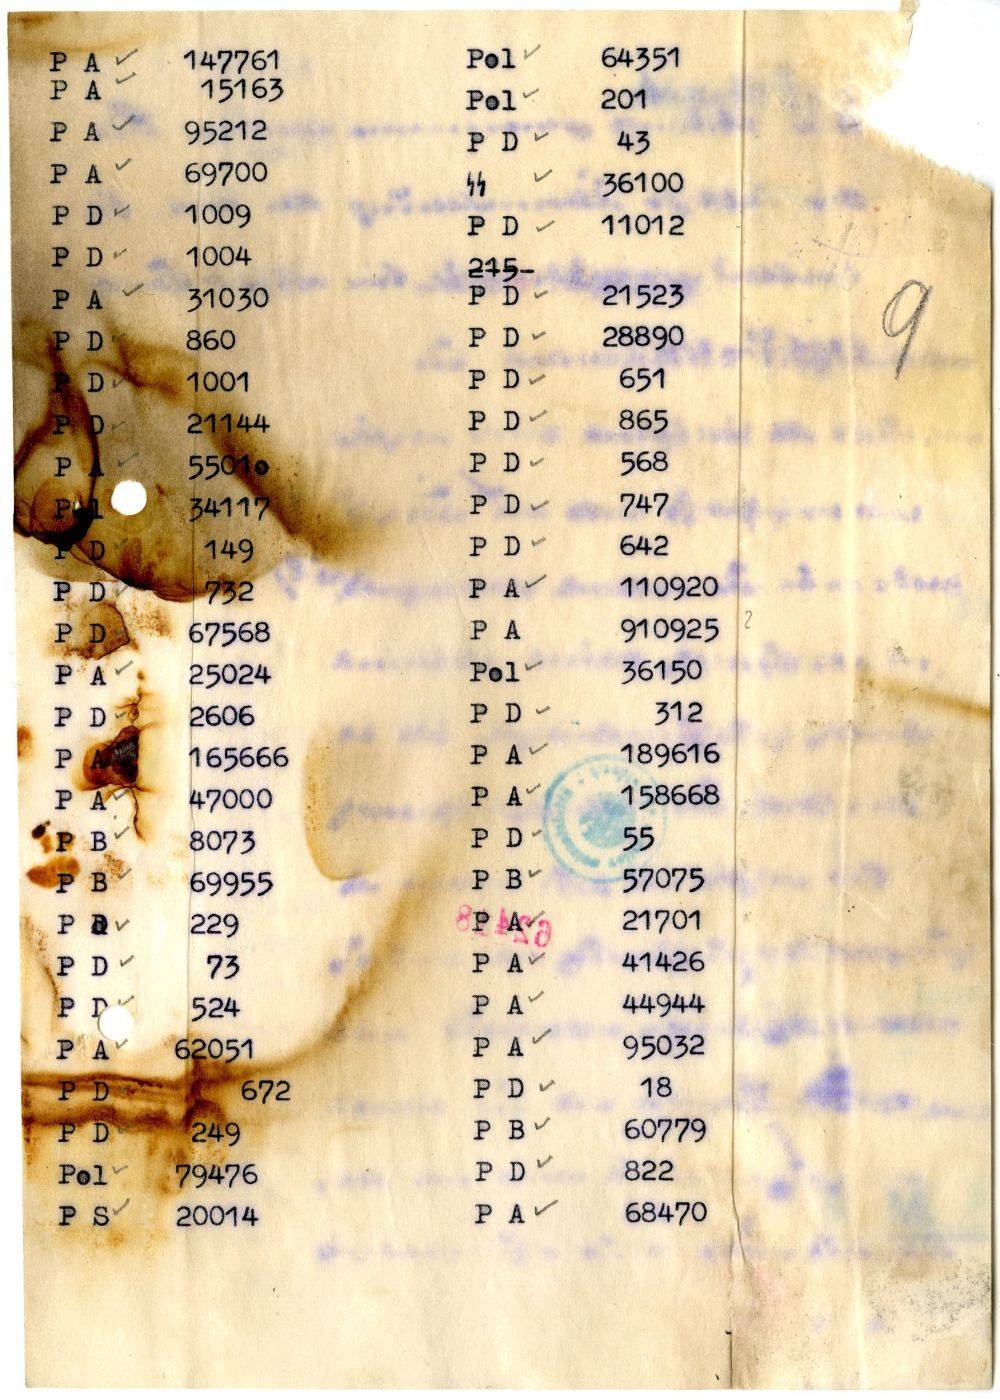 P A ✓ 147761
P A ✓ 15163
P A ✓ 95212
P A ✓ 69700
P D ✓ 1009
P D ✓ 1004
P A ✓ 31030
P D ✓ 860
P D ✓ 1001
P D ✓ 21144
P A ✓ 55010
Pol 34117
P D 149
P D ✓ 732
P D 67568
P A ✓ 25024
P D ✓ 2606
P A 165666
P A ✓ 47000
P B ✓ 8073
P B ✓ 69955
P ✓ 229
P D ✓ 73
P D ✓ 524
P A ✓ 62051
P D 672
P D ✓ 249
Pol ✓ 79476
P S ✓ 20014
Pol ✓ 64351
Pol ✓ 201
P D ✓ 43
ᛋᛋ ✓ 36100
P D ✓ 11012
215-
P D ✓ 21523
P D ✓ 28890
P D ✓ 651
P D ✓ 865
P D ✓ 568
P D ✓ 747
P D ✓ 642
P A ✓ 110920
P A 910925 ?
Pol ✓ 36150
P D ✓ 312
P A ✓ 189616
P A ✓ 158668
P D ✓ 55
P B ✓ 57075
P A ✓ 21701
P A ✓ 41426
P A ✓ 44944
P A ✓ 95032
P D ✓ 18
P B ✓ 60779
P D ✓ 822
P A ✓ 68470
9